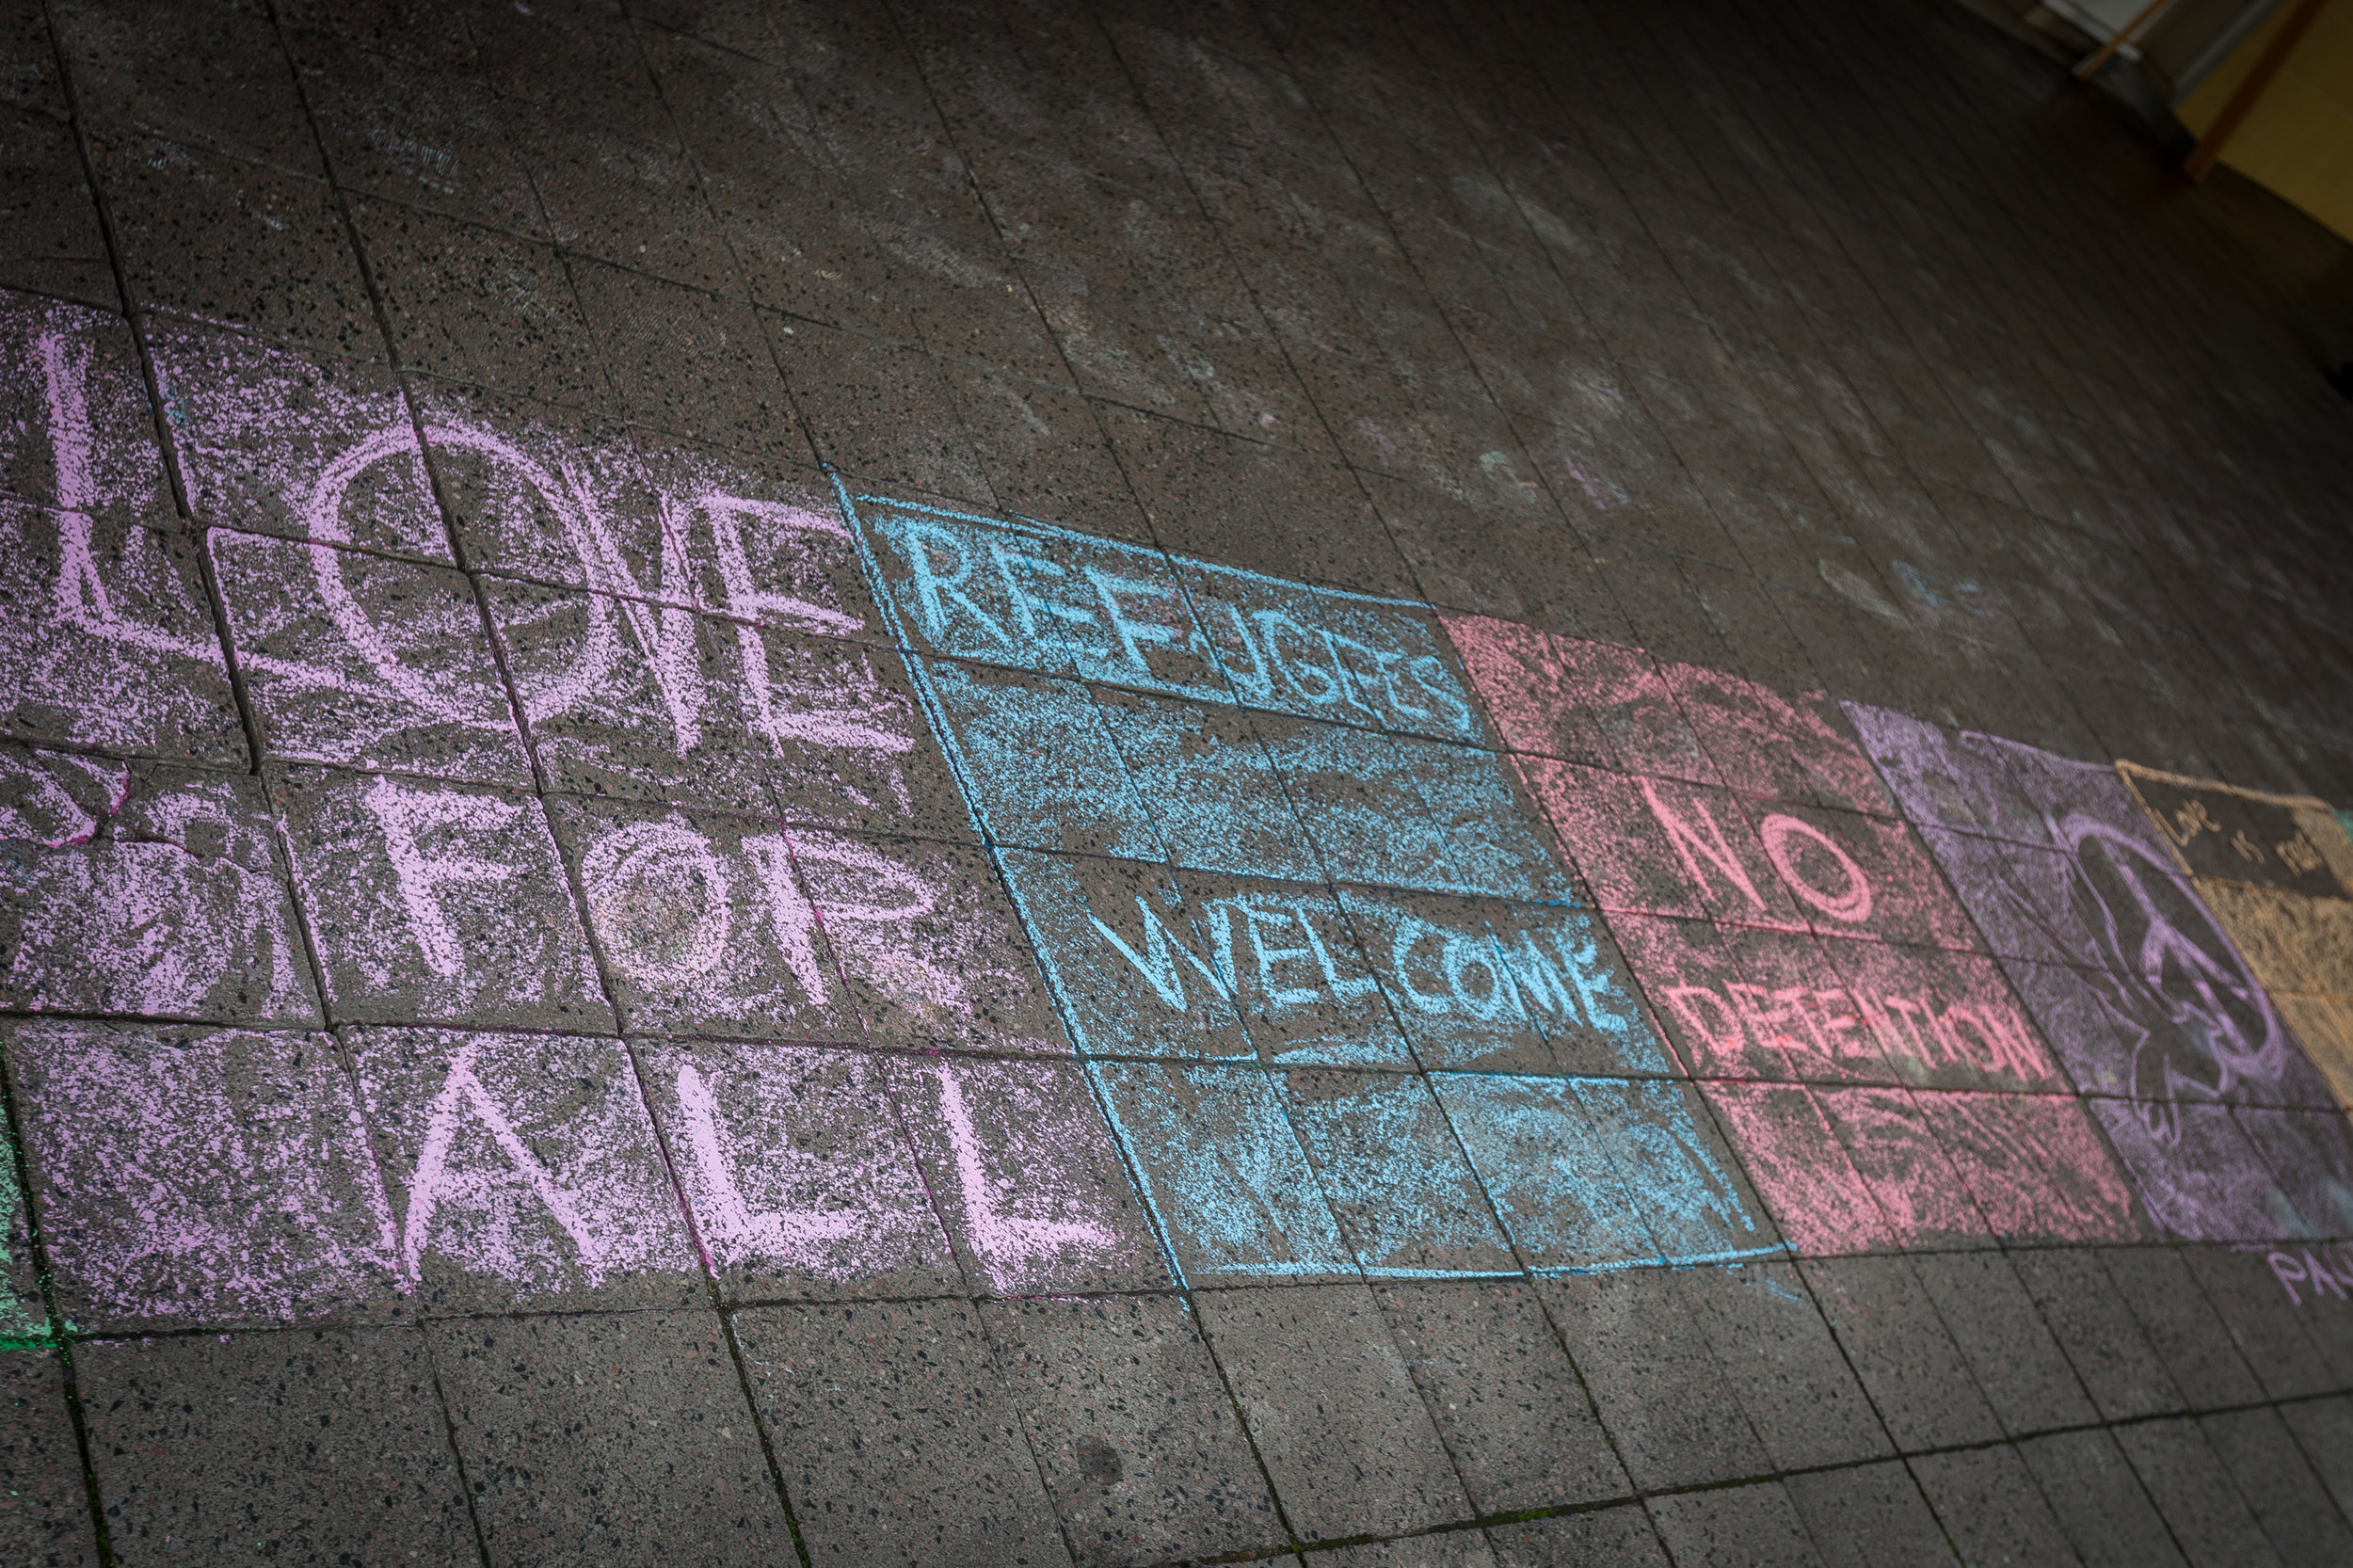 LOVE
FOR
ALL
REFUGEES
WELCOME
NO
DETENTION
Love
is